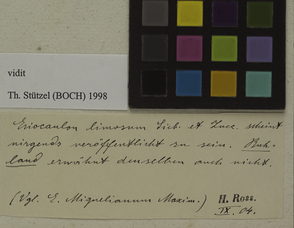 vidit
Th. Stützel (BOCH) 1998
Eriocaulon limosum Sieb. et Zucc. scheint
nirgends veröffentlicht zu sein. Ruh-
land erwähnt denselben auch nicht.
(Vgl. E. Miquelianum Maxim.)
H. Ross.
IX. 04.